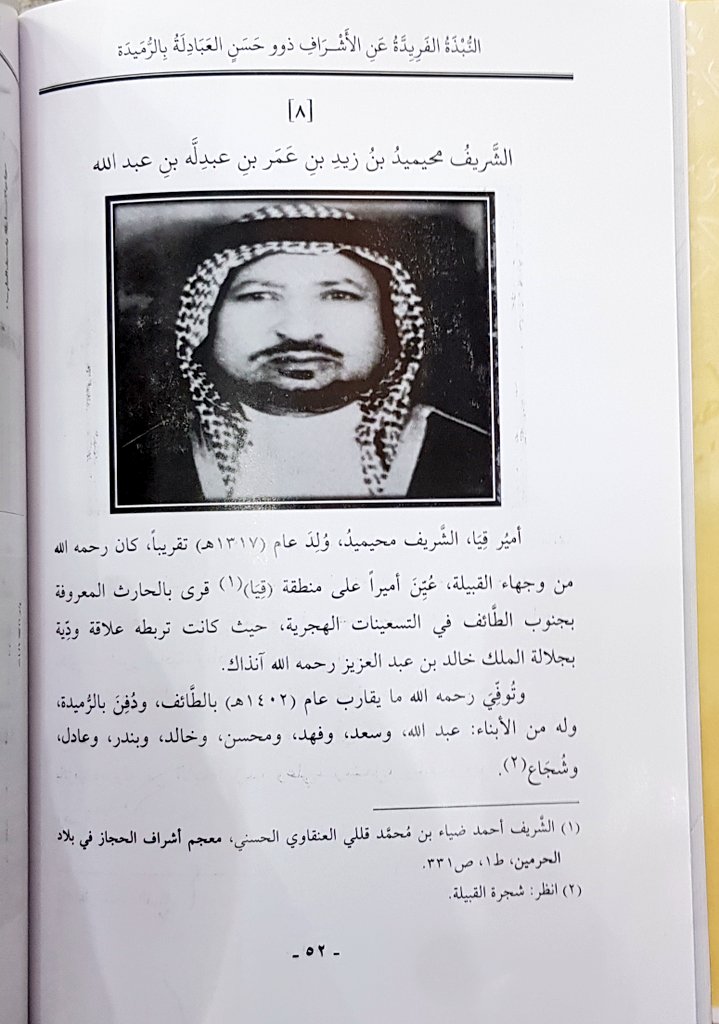 النُّبْذَةُ الفَرِيدَّةُ عَنِ الأَشْرَافِ ذوو حَسَنٍ العَبَادِلَةُ بِالرُّمَيدَة
[٨]
الشَّريفُ محيميدُ بنُ زيدِ بنِ عَمَر بنِ عبدِلَّه بنِ عبد الله
أميُر قِيَا، الشَّريف محيميدُ، وُلِدَ عام (١٣١٧هـ) تقريباً، كان رحمه الله
من وجهاء القبيلة، عُيِّنَ أميراً على منطقة (قِيَا)(١) قرى بالحارث المعروفة
بجنوب الطَّائف في التسعينات الهجرية، حيث كانت تربطه علاقة وِدِّية
بجلالة الملك خالد بن عبد العزيز رحمه الله آنذاك.
وتُوفِّيَ رحمه الله ما يقارب عام (١٤٠٢هـ) بالطَّائف، ودُفِنَ بالرُّميدة،
وله من الأبناء: عبد الله، وسعد، وفهد، ومحسن، وخالد، وبندر، وعادل،
وشُجَاع(٢).
(١) الشَّريف أحمد ضياء بن مُحمَّد قللي العنقاوي الحسني، معجم أشراف الحجاز في بلاد
الحرمين، ط١، ص٣٣١.
(٢) انظر: شجرة القبيلة.
- ٥٢ -